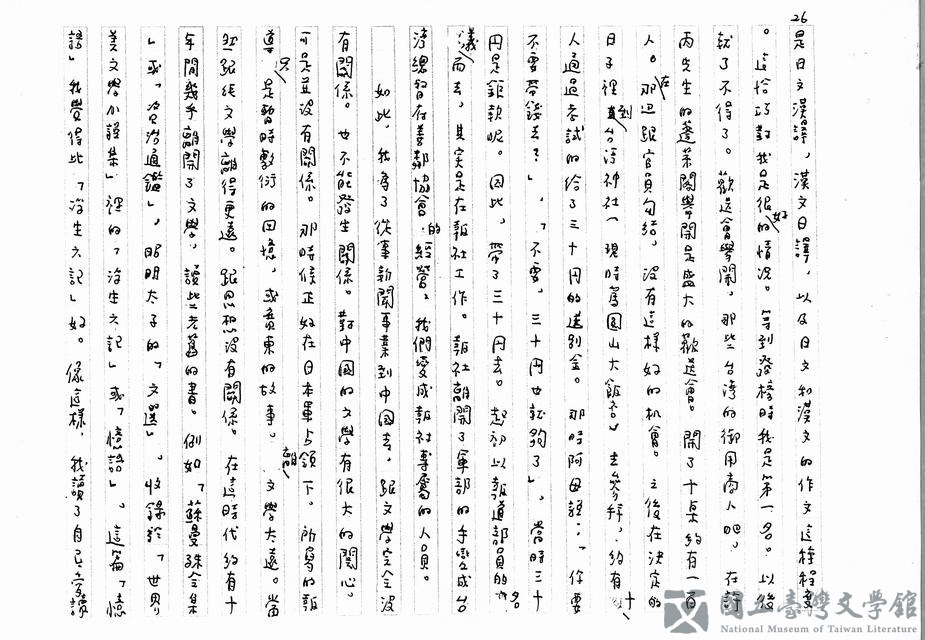 26
是日文漢譯，漢文日譯，以及日文和漢文的作文這種程度
。這恰巧對我是很好的情況。等到發榜時我是第一名。以後
就了不得了。歡送會學開，那些台灣的御用商人吧，在許
丙先生的蓬萊閣學開是盛大的歡送會。開了十桌約有一百
人。那在跟官員勾結，沒有這樣好的机會。之後在決定的
日子裡到台湾神社（現時蔦圓山大飯店）去參拜，約有十
人通過考試的給了三十円的送別金。那時阿母說：「你要
不要帶錢去？」，「不要，三十円也就夠了」，當時三十
円是鉅款呢。因此，帶了三十円去。起初以報道部員的名
義而去，其實是在報社工作。報社離開了軍部的手變成台
湾總督在善鄰協會的經營，我們變成報社專屬的人員。
如此，我為了從事新聞事業到中國去，跟文學完全沒
有關係。也不能發生關係。對中國的文學有很大的関心。
可是並沒有關係。那時候正好在日本軍占領下。所寫的報
導只是暫時敷衍的回憶，或賣東的故事。離文學太遠。當
然跟純文學離得更遠。跟思想沒有關係。在這時代約有十
年間幾乎離開了文學，讀些老舊的書。例如「蘇曼殊全集
」或「資治通鑑」，昭明太子的「文選」。收錄於「世界
美文學小說集」裡的「浮生六記」或「憶語」。這篇「憶
語」我覺得比「浮生六記」好。像這樣，我讀了自己高讀
國立臺灣文學館
National Museum of Taiwan Literature